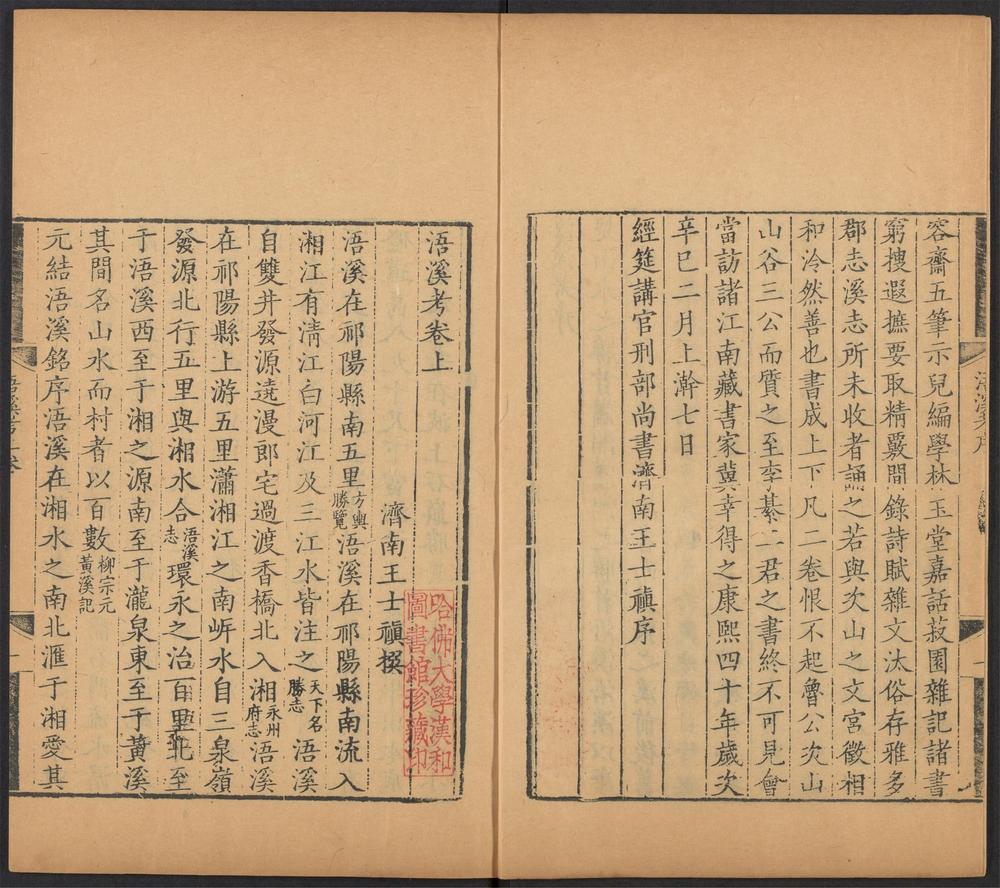 容齋五筆示兒編學林玉堂嘉話菽園雜記諸書
窮搜遐摭要取精覈間錄詩賦雜文汰俗存雅多
郡志溪志所未收者誦之若與次山之文宮徵相
和泠然善也書成上下凡二卷恨不起魯公次山
山谷三公而質之至李綦二君之書終不可見會
當訪諸江南藏書家冀幸得之康熙四十年歲次
辛巳二月上澣七日
經筵講官刑部尚書濟南王士禛序
浯溪考序
浯溪考卷上
濟南王士禛撰
浯溪在祁陽縣南五里方輿勝覽浯溪在祁陽縣南流入
湘江有清江白河江及三江水皆注之天下名勝志浯溪
自雙井發源遶漫郎宅過渡香橋北入湘永州府志浯溪
在祁陽縣上游五里瀟湘江之南岍水自三泉嶺
發源北行五里與湘水合浯溪志環永之治百里北至
于浯溪西至于湘之源南至于瀧泉東至于黃溪
其間名山水而村者以百數柳宗元黃溪記
元結浯溪銘序浯溪在湘水之南北滙于湘愛其
哈佛大學漢和
圖書館珍藏印